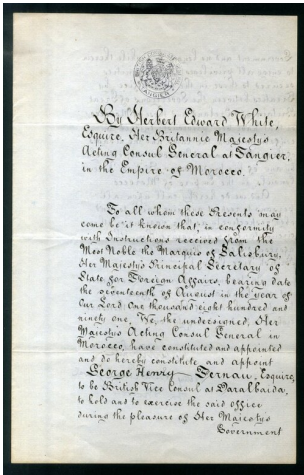 By Herbert Edward White,
Esquire, Her Britannic Majesty's
Acting Consul General at Tangier,
in the Empire of Morocco.
To all whom these Presents may
come be it known that, in conformity
with Instructions received from the
Most Noble the Marquis of Salisbury,
Her Majesty's Principal Secretary of
State for Foreign Affairs, bearing date
the seventeenth of August in the year of
Our Lord One thousand eight hundred and
ninety one, We, the undersigned, Her
Majesty's Acting Consul General in
Morocco, have constituted and appointed
and do hereby constitute and appoint
George Henry Fernau, Esquire,
to be British Vice Consul at Daralbaida,
to hold and to exercise the said office
during the pleasure of Her Majesty's
Government